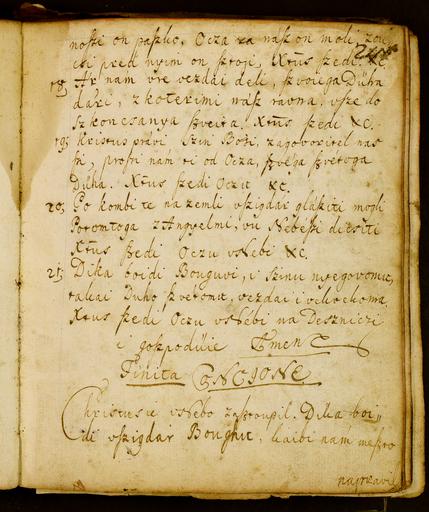 noſzi on paſzko. Ocza za naſz on moli
pred nyim on ſztoji, Xtus ſzedi &c.
18; Ar nam vre vezdai deli, ſzvoiega Duha
dari, z koterimi naſz ravna, vſze do
ſzkoncsanya ſzveita. Xtus ſzedi &c.
19; Kristus pravi Szin Bosi, zagovoritel nas
ſni, proſni nam ti od Ocza, ſzvéga ſzvetoga
Duha. Xtus ſzedi Oczu &c.
20; Po kom bi te na zemli vſzigdar glaſziti mogli
Potomtoga z Angyelmi, vu Nebeſzi dicsiti
Xtus ſzedi Oczu v Nebi &c.
21; Dika boidi Bouguvi, i Szinu nyegovomu,
takai Duho ſzvetomu, vezdai i vekvekoma
Xtus ſzedi Oczu v Nebi na Deszniczi
i goſzpodüie Amen
Finita CNCIONE
Christus ie v Nebo zaſztoupil. Dika boi„
di vſzigdar Boughu, kai bi nam meſzto
napravil